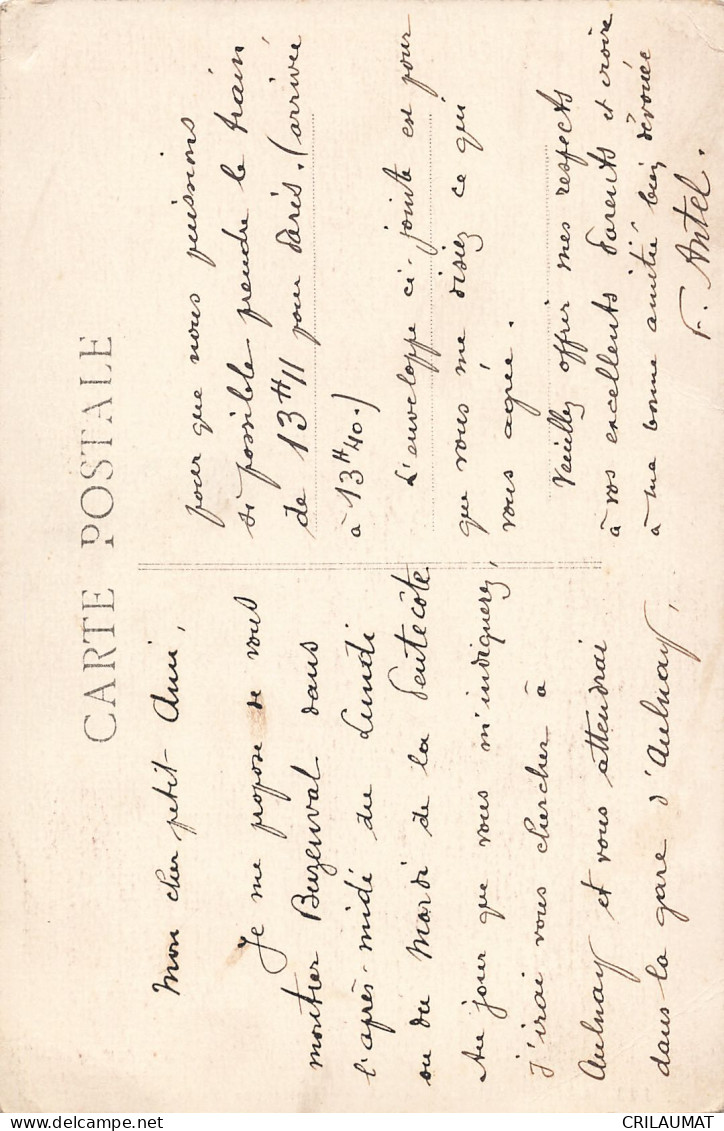 CARTE POSTALE
Mon cher petit Ami,
Je me propose de vous
montrer Buzenval dans
l'après-midi du Lundi
ou du Mardi de la Pentecôte.
Au jour que vous m'indiquerez,
j'irai vous chercher à
Aulnay et vous attendrai
dans la gare d'Aulnay,
pour que nous puissions
si possible prendre le train
de 13H11 pour Paris. (arrivée
à 13H40.)
L'enveloppe ci-jointe est pour
que vous me disiez ce qui
vous agrée.
Veuillez offrir mes respects
à vos excellents Parents et croire
à ma bonne amitié bien dévouée
F. Antel.
CRILAUMAT